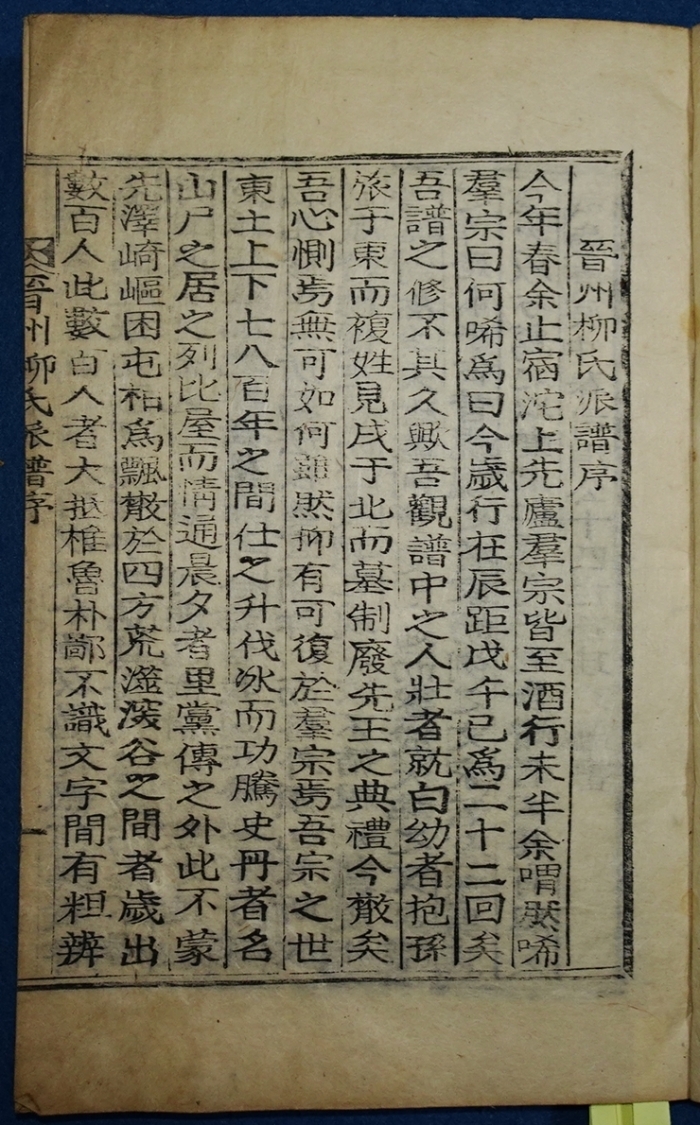 晉州柳氏派譜序
今年春余止宿沱上先廬羣宗皆至酒行未半余喟然唏
羣宗曰何唏爲曰今歲行在辰距戊午已爲二十二回矣
吾譜之修不其久歟吾觀譜中之人壯者就白幼者抱孫
旅于東而複姓見戌于北而墓制廢先王之典禮今散矣
吾心惻焉無可如何雖然抑有可復於羣宗焉吾宗之世
東土上下七八百年之間仕之升伐冰而功騰史丹者名
山尸之居之列比屋而情通晨夕者里黨傳之外此不蒙
先澤崎嶇困屯相爲飄散於四方荒澨深谷之間者歲出
數百人此數百人者大抵椎魯朴鄙不識文字間有粗辨
晉州柳氏派譜序
一